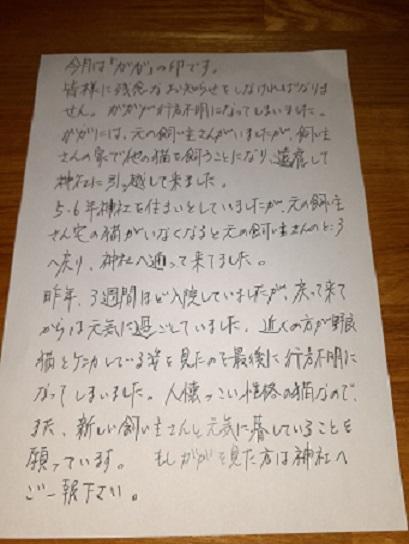 今月は「ガガ」の印です。
皆様に残念なお知らせをしなければなりま
せん。ガガが行方不明になってしまいました。
ガガには、元の飼い主さんがいましたが、飼い主
さんの家で他の猫を飼うことになり、遠慮して
神社に引っ越して来ました。
5.6年神社を住まいとしていましたが、元の飼い主
さん宅の猫がいなくなると元の飼い主さんのところ
へ戻り、神社へ通って来てました。
昨年、3週間ほど入院していましたが、戻って来て
からは元気に過ごしていました。近くの方が野良
猫とケンカしている姿を見たのを最後に行方不明に
なってしまいました。人懐っこい性格の猫なので、
また、新しい飼い主さんと元気に暮していることを
願っています。 もしガガを見た方は神社へ
ご一報下さい。